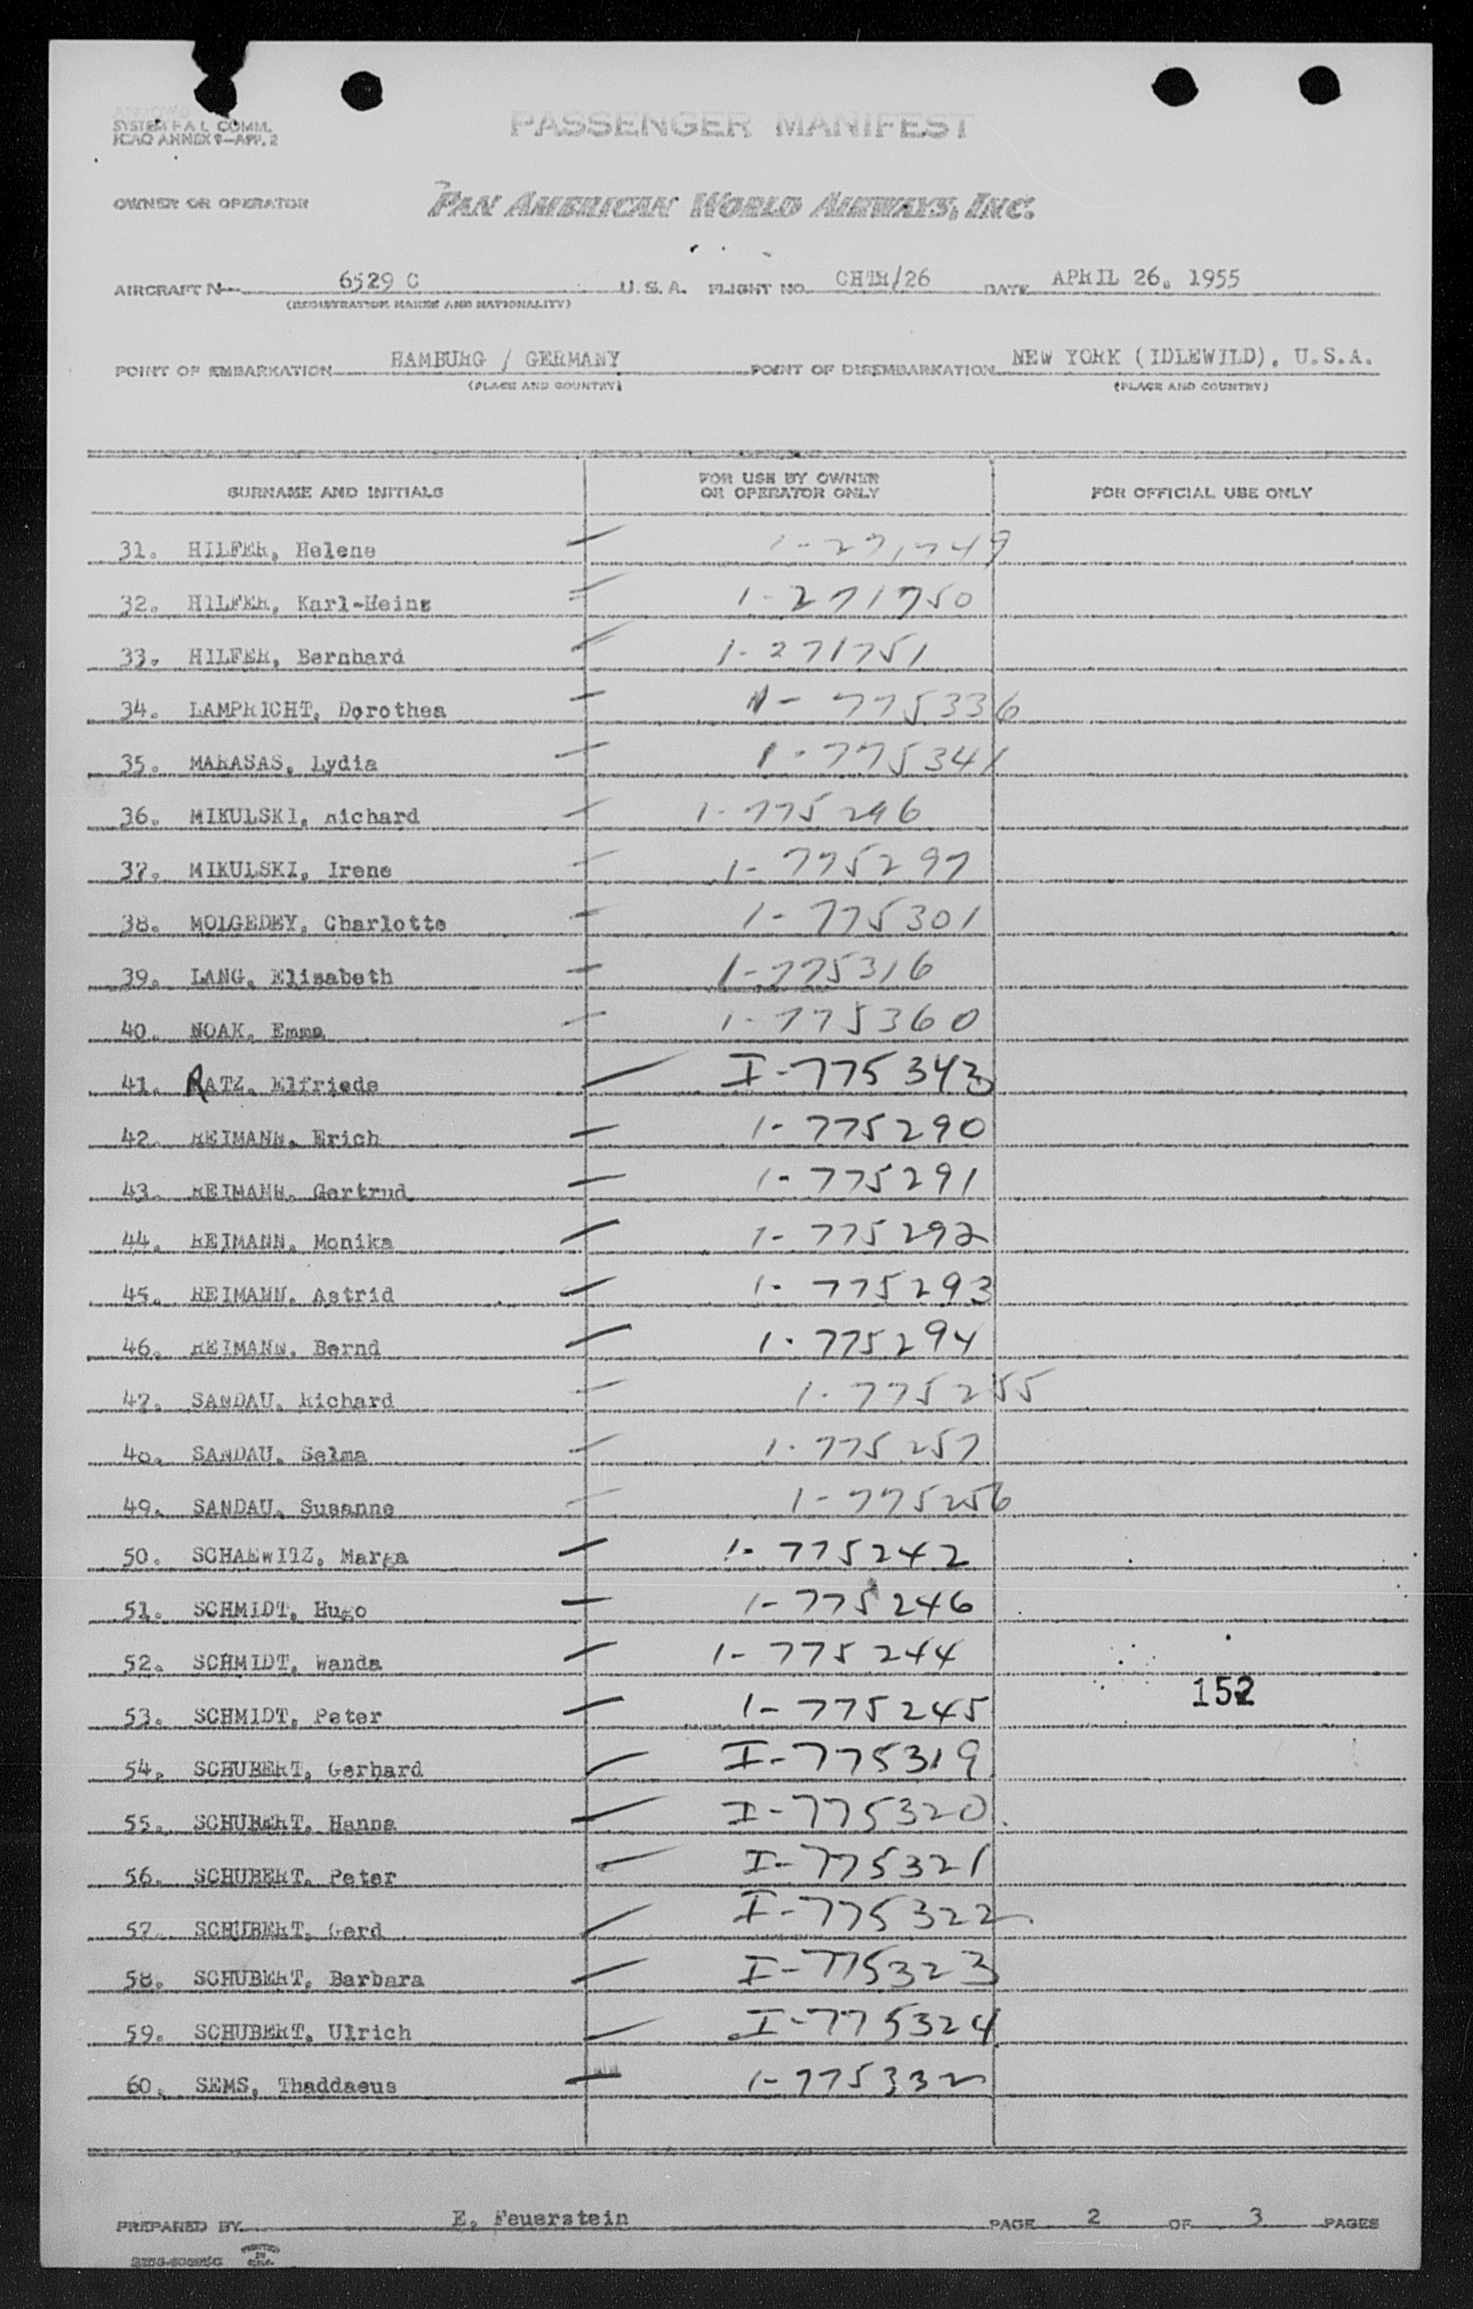 SYSTEM F A L COMM.
ICAO ANNEX 9—APP. 2
PASSENGER MANIFEST
OWNER OR OPERATOR
PAN AMERICAN WORLD AIRWAYS, INC.
AIRCRAFT N 6529 C U. S. A. FLIGHT NO. CHTR/26 DATE APRIL 26. 1955
(REGISTRATION MARKS AND NATIONALITY)
POINT OF EMBARKATION HAMBURG / GERMANY POINT OF DISEMBARKATION NEW YORK (IDLEWILD), U.S.A.
(PLACE AND COUNTRY) (PLACE AND COUNTRY)
SURNAME AND INITIALS FOR USE BY OWNER OR OPERATOR ONLY FOR OFFICIAL USE ONLY
31. HILFER, Helene 1-271749
32. HILFER, Karl-Heinz 1-271750
33. HILFER, Bernhard 1-271751
34. LAMPRICHT, Dorothea 1-775336
35. MARASAS, Lydia 1-775341
36. MIKULSKI, Richard 1-775296
37. MIKULSKI, Irene 1-775297
38. MOLGEDEY, Charlotte 1-775301
39. LANG, Elisabeth 1-775316
40. NOAK, Emma 1-775360
41. RATZ, Elfriede I-775343
42. REIMANN, Erich 1-775290
43. REIMANN, Gertrud 1-775291
44. REIMANN, Monika 1-775292
45. REIMANN, Astrid 1-775293
46. REIMANN, Bernd 1-775294
47. SANDAU, Richard 1-775255
48. SANDAU, Selma 1-775257
49. SANDAU, Susanne 1-775256
50. SCHAEWITZ, Marga 1-775242
51. SCHMIDT, Hugo 1-775246
52. SCHMIDT, Wanda 1-775244
152
53. SCHMIDT, Peter 1-775245
54. SCHUBERT, Gerhard I-775319
55. SCHUBERT, Hanna I-775320
56. SCHUBERT, Peter I-775321
57. SCHUBERT, Gerd I-775322
58. SCHUBERT, Barbara I-775323
59. SCHUBERT, Ulrich I-775324
60. SEMS, Thaddaeus 1-775332
PREPARED BY E. Feuerstein PAGE 2 OF 3 PAGES
PRINTED IN